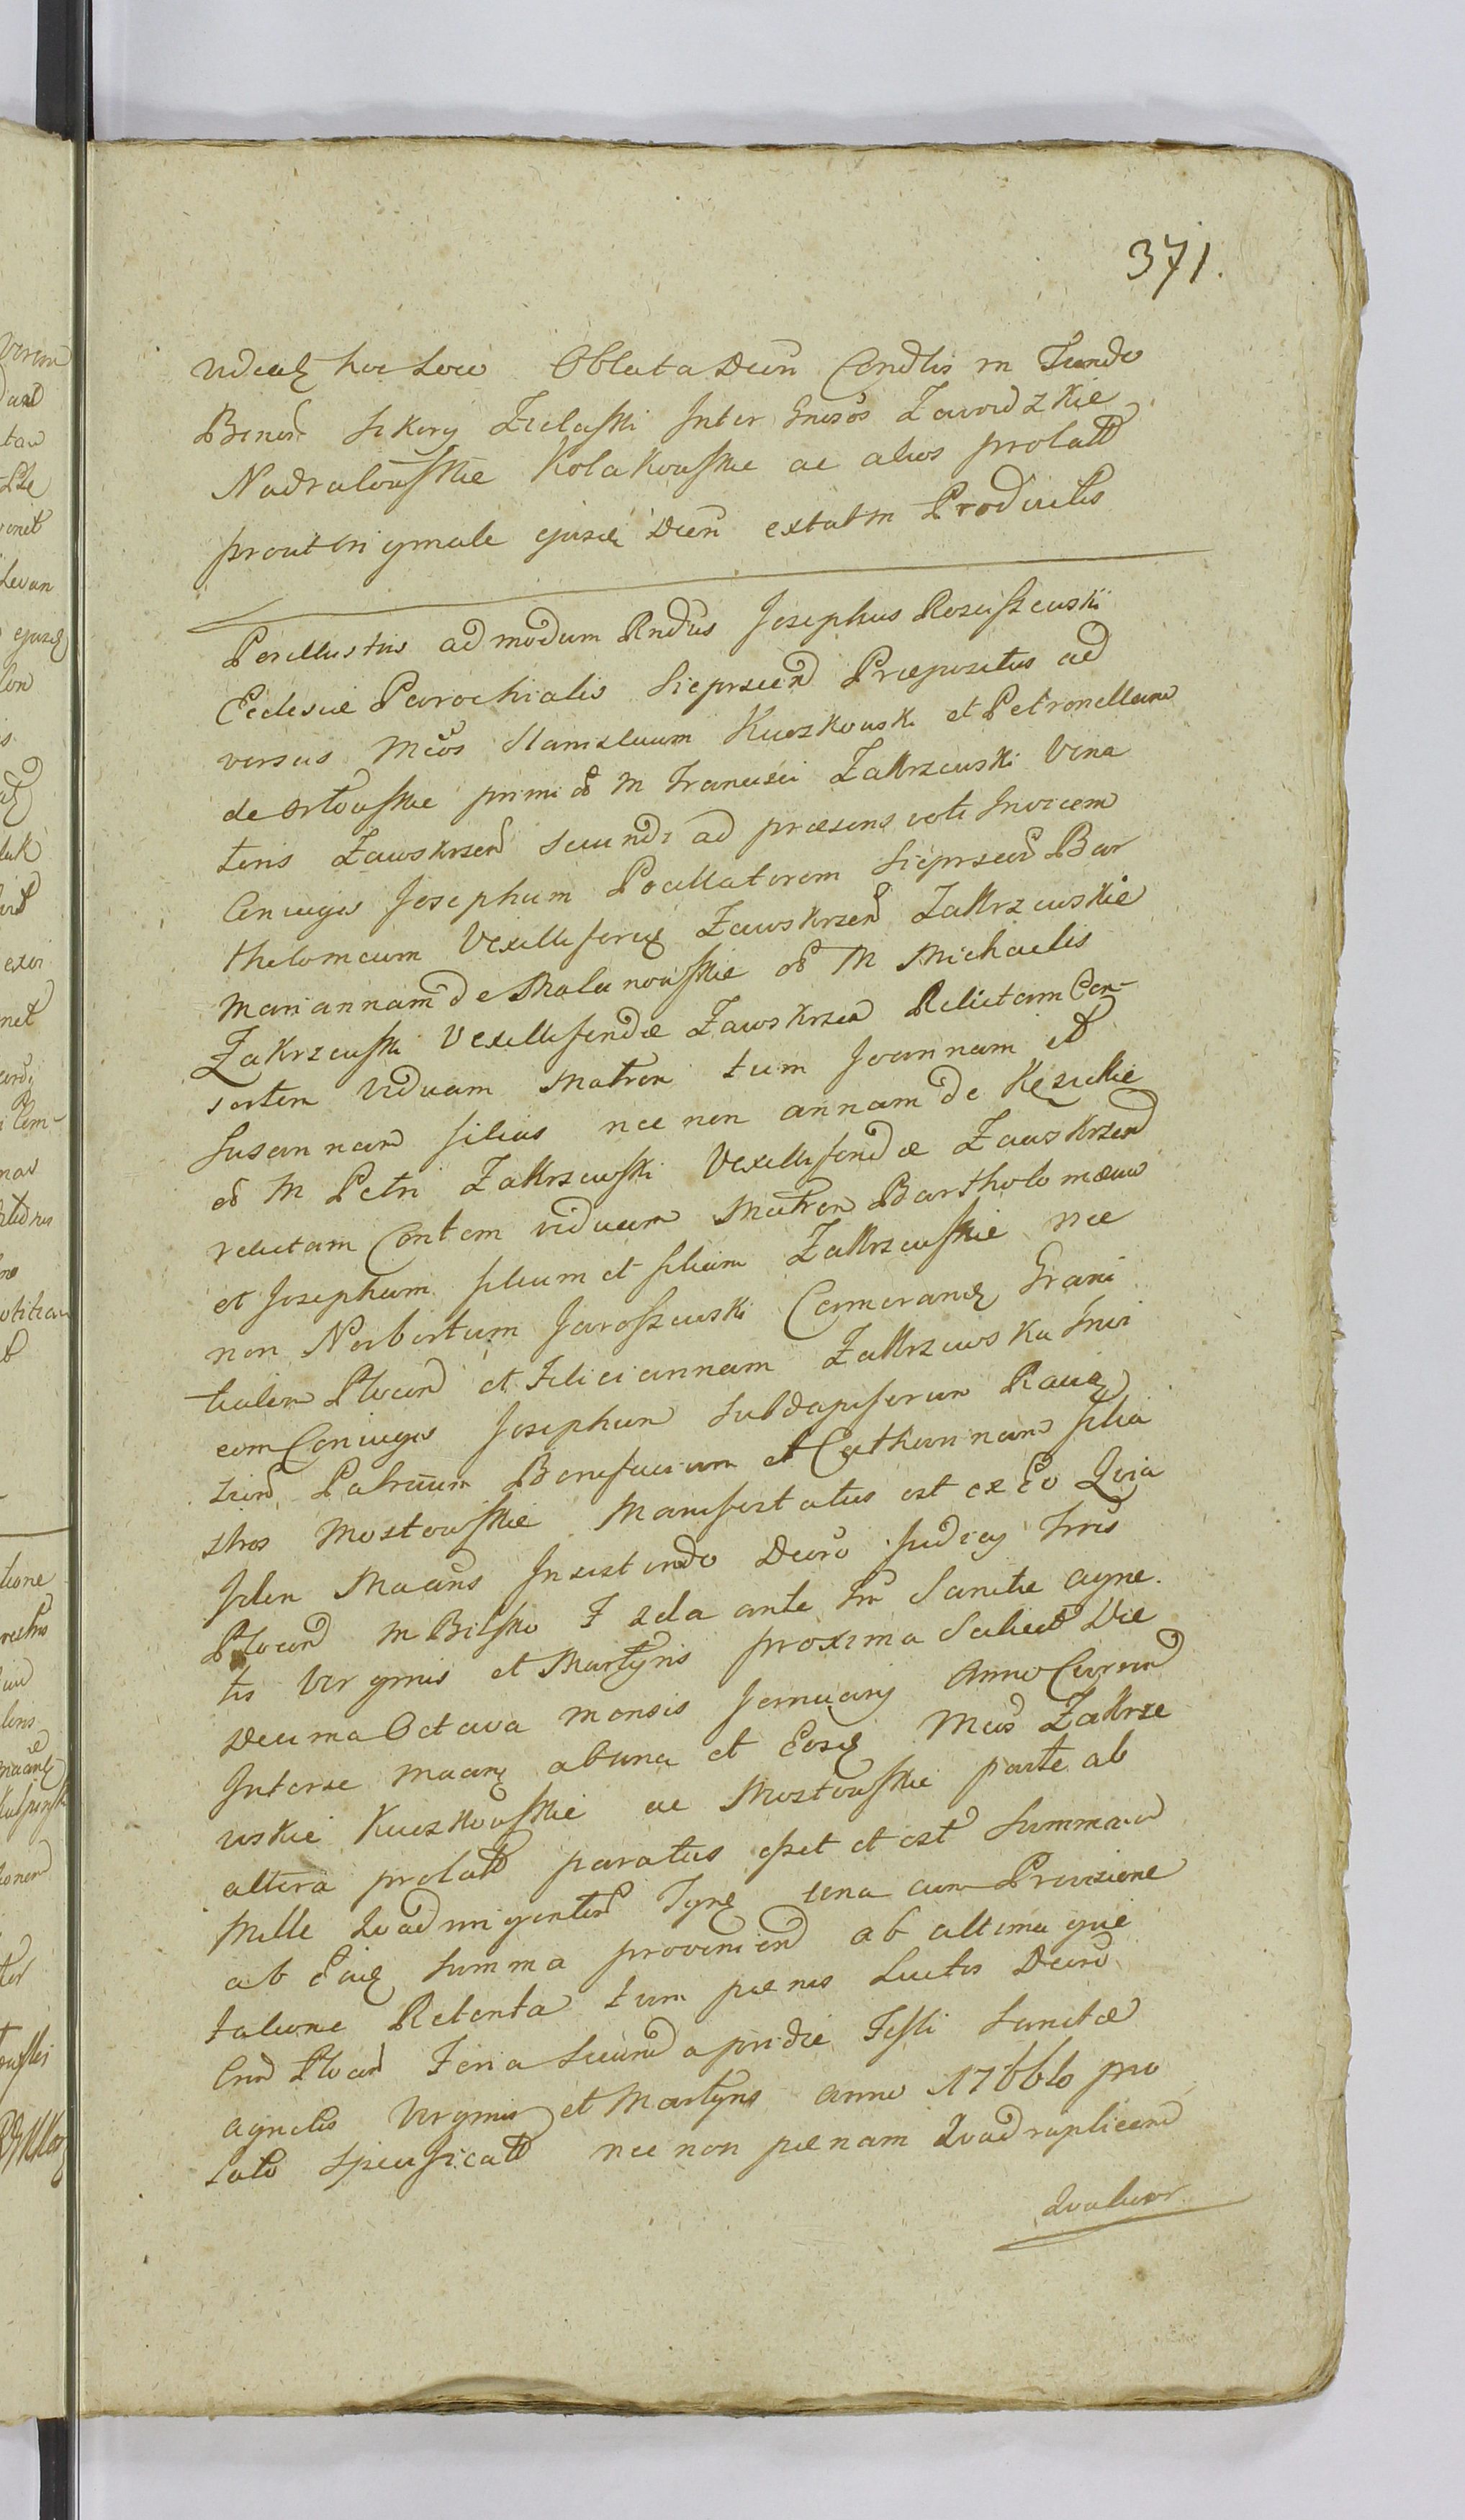 371.
hoc Loco Oblata Decri Condlis in Fundo
Bonor Sikory Zielaski Inter Gnosos Zawidzkie
Nadratowskie Kolakowskie ac alios prolatt
prout originale ejusd Decri extat in Productis
Perillustris admodum Rndus Josephus Rosciszewski
Ecclesiæ Parochialis Sieprscen Præpositus ad
versus Mcos Stanislaum Kuczkowski et Petronellam
de Ortowskie primi olim M Francisci Zakrzewski Vena
toris Zawskrzen secundi ad præsens voti Invicem
Coniuges Josephum Pocillatorem Sieprscen Bar
tholomeum Vexilliferid Zawskrzen Zakrzewskie
Mariannam de Malanowskie olim M Michaelis
Zakrzewski Vexilliferidæ Zawskrzen Relictam Con-
sortem Viduam Matrem tum Joannam et
Susannam filias nec non annam de Kęsickie
olim M Petri Zakrzewski Vexilliferidæ Zawskrzen
relictam Contem viduam Matrem Bartholomæum
et Josepham filium et filiam Zakrzewskie nec
non Norbertum Jaroszewski Camerarid Grani
tialem Plocen et Feliciannam Zakrzewska Invi
cem Coniuges Josephum Subdapiferum Raciąż
Patruum Bonifacium et Catharinnam filia
stros Mostowskie Manifestatus est ex Eo Quia
Idem Maans Insistendo Decro Judicij Trris
Plocen in Bilsko F 2da ante Fm Sanctæ Agne
tis Virginis et Martyris proxima Scilicet Die
Decima Octava mensis Januarij Anno Curren
Interse Maan ab una et Eosd Mcos Zakrze
wskie Kuczkowskie ac Mostowskie parte ab
altera prolatt paratus esset et est Summam
Mille Quadringentor Tynf una cum Provisione
ab Ead Summa provenien ab ultima quie
tatione Retenta tum pænas Luctas Decro
Crri Plocen Feria Secunda pridie Festi Sanctæ
Agnetis Virginis et Martyris anno 1766to pro
lato Specificatt nec non pænam Quadruplicem
Qualivor